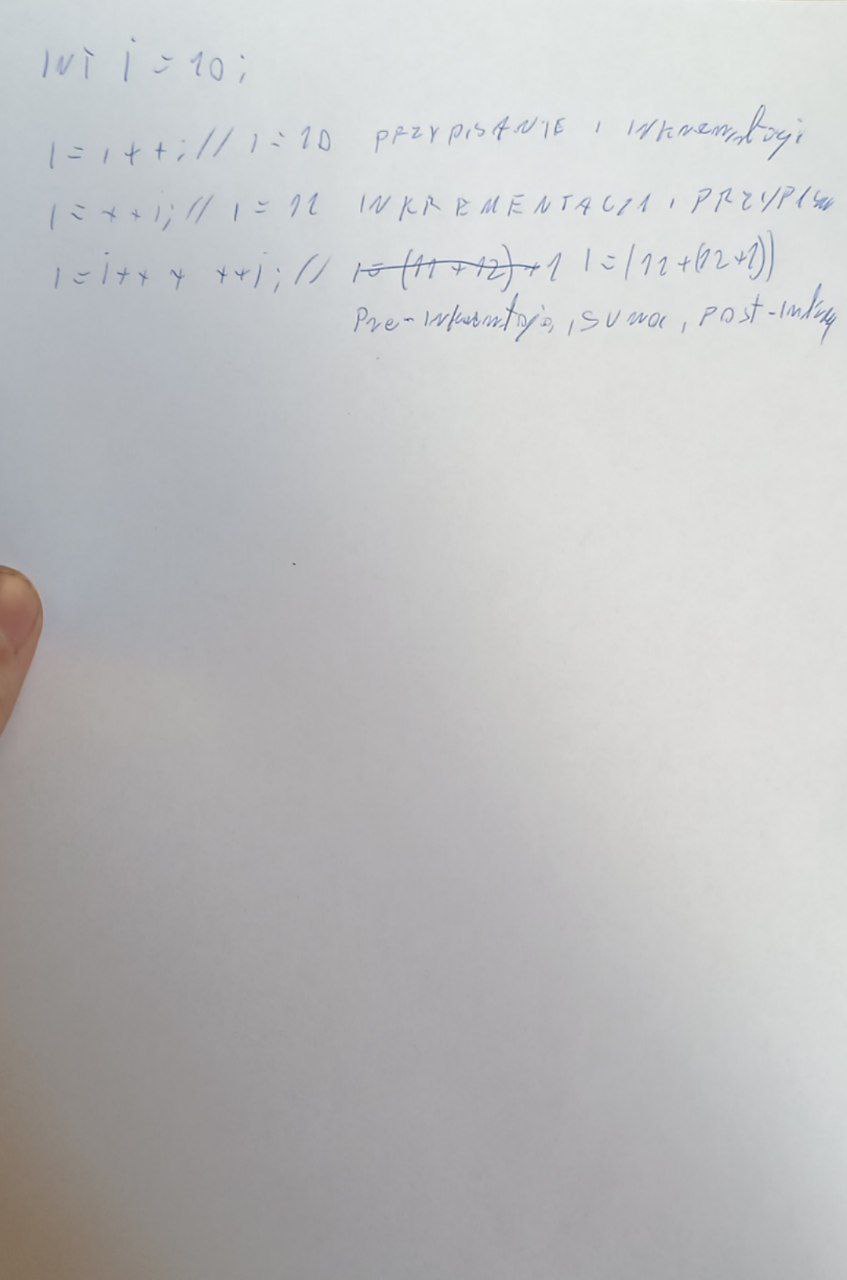 INT i = 10;
i = i++; // i = 10 PRZYPISANIE i inkrementacji
i = ++i; // i = 11 INKREMENTACJA i PRZYPISA
i = i++ + ++i; // i = (11 + 12) + 1 i = (11 + (12 + 1))
Pre-inkrementacja, suma, post-inkr